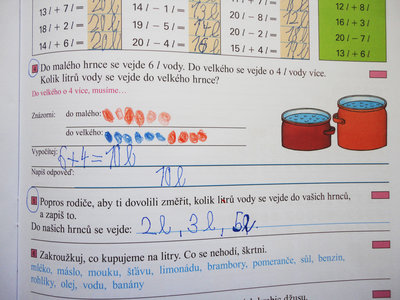 11 l + 7 l =
18 l + 2 l = 20l
14 l + 6 l = 20l
14 l − 1 l =
19 l − 5 l = 14l
20 l − 4 l = 16l
20 l − 8 l =
20 l − 2 l =
15 l + 4 l =
12 l + 8 l
16 l + 3 l
20 l − 7 l
13 l + 6 l
Do malého hrnce se vejde 6 l vody. Do velkého se vejde o 4 l vody více.
Kolik litrů vody se vejde do velkého hrnce?
Do velkého o 4 více, musíme…
Znázorni: do malého:
do velkého:
Vypočítej: 6+4=10l
Napiš odpověď: 10l
Popros rodiče, aby ti dovolili změřit, kolik litrů vody se vejde do vašich hrnců,
a zapiš to.
Do našich hrnců se vejde: 2l, 3l, 5l.
Zakroužkuj, co kupujeme na litry. Co se nehodí, škrtni.
mléko, máslo, mouku, šťávu, limonádu, brambory, pomeranče, sůl, benzin,
rohlíky, olej, vodu, banány
džusu.